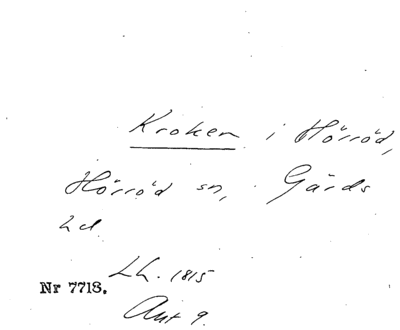 Kroken i Hörröd,
Hörröd sn, Gärds
hd
Lh. 1815
Nr 7713.
Akt 9.